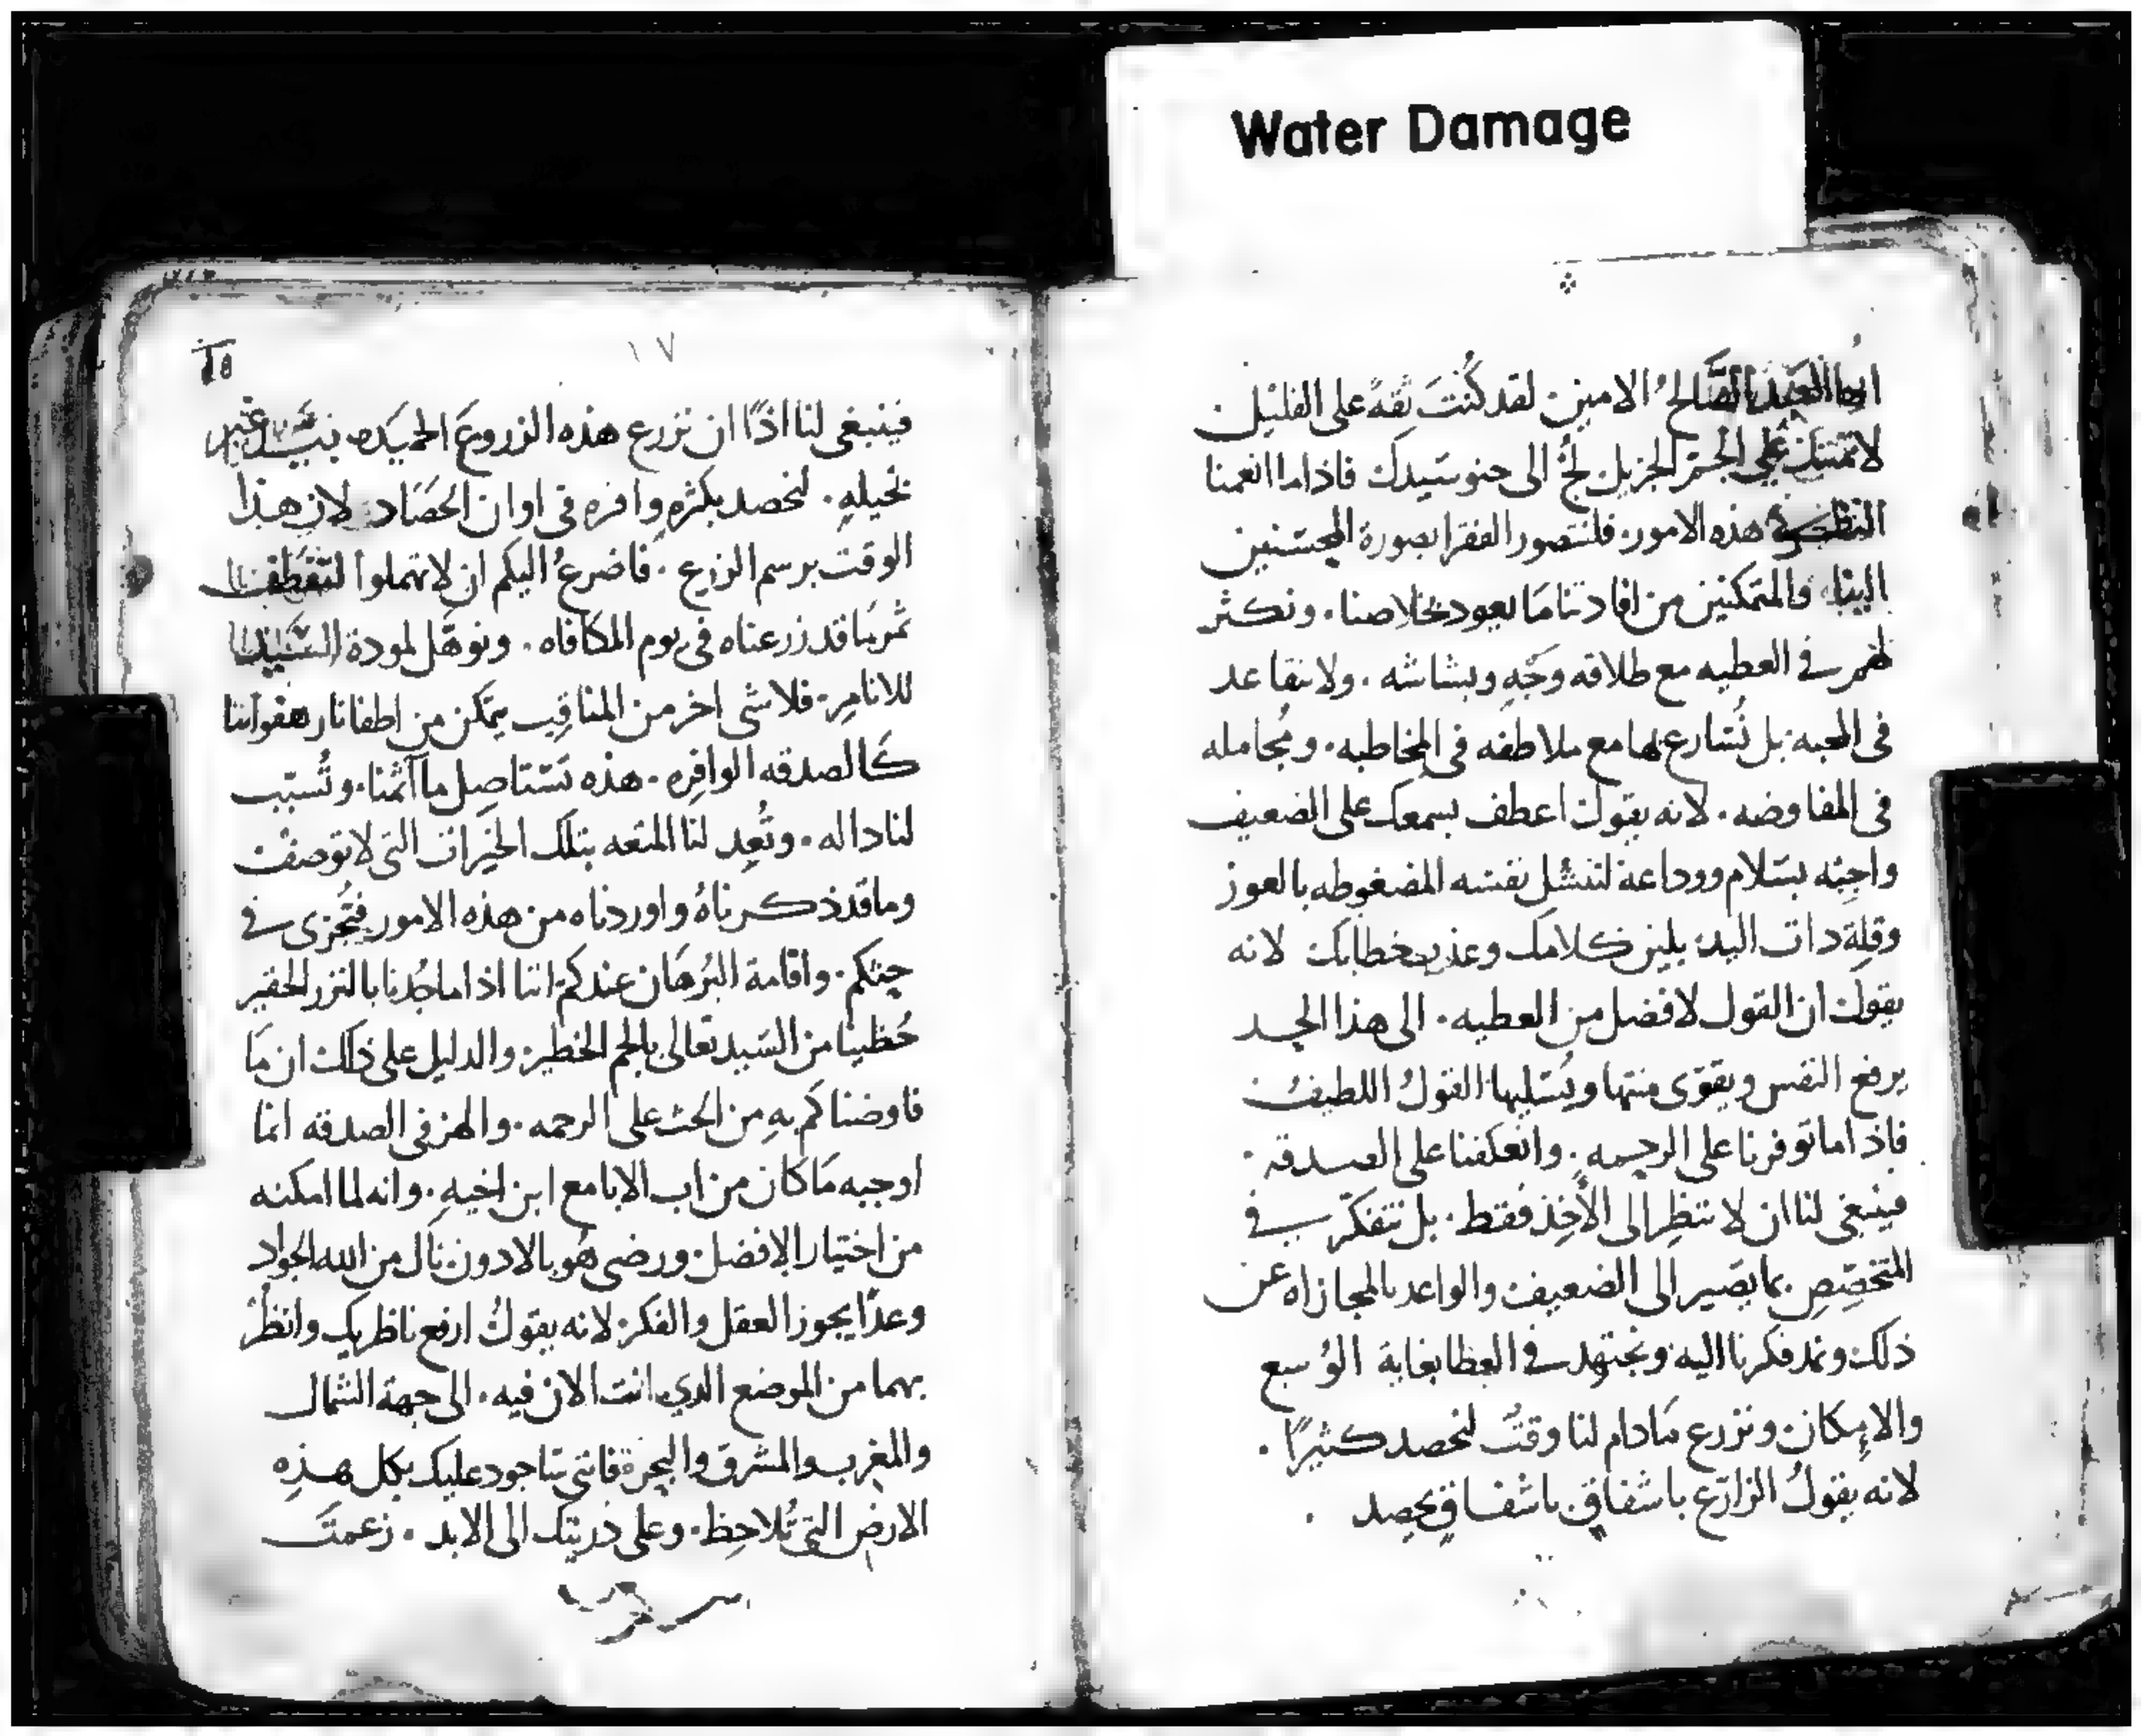 Water Damage
ايها العبد الصالح الامين. لقد كُنتَ ثقةً على القليل
لجُ الى حنو سَيدك فاذا ما انعمنا
النظر في هذه الامور. فلنتصور الفقرا بصورة المحسنين
الينا. والمتمكنين من افادتنا مَا يعود بخلاصنا. ونكثر
لهم في العطيه مع طلاقه وَجْهٍ وبشاشه. ولا نتقاعد
في المحبه. بل نُسَارع لها مع ملاطفه في المخاطبه. ومُجامله
في المفاوضه. لانه يقول اعطف بسمعك على الضعيف
واجبْه بسَلام ووداعة لننشُل نفسَه المضغوطه بالعوز
وقلة دات اليد. بلين كلامك وعذب خطابك لانه
يقول ان القول لافضل من العطيه. الى هذا الحد
يرفع النفس ويقوّى منتها ويُسَليها القولُ اللطيف
فاذا ما توفرنا على الرحمه. وانعكفنا على الصدقه.
فينبغى لنا ان لا ننظر الى الآخذ فقط. بل نتفكر في
المتخصّصِ بما يصَير الى الضعيف والواعد بالمجازاه عن
ذلك ونمد فكرنا اليه ونجتهد في العطا بغاية الوُسع
والامكان ونزرع مَادام لنا وقتٌ لنحصد كثيرًا.
لانه يقولُ الزارَع باشفاقٍ باشفاقٍ يحصد.
١٧
فينبغى لنا اذًا ان نزرع هذه الزروعَ الحميَده. بيَدٍ غير
بخيله. لنحصد بكثره وافره في اوان الحَصَاد. لان هذا
الوقت برسم الزرع. فاضرعُ اليكم ان لا تهملوا لنقطف
ثمر مَا قد زرعناه في يوم المكافاه. ونوهّل لمودة السَيد
للانام. فلا شى اخر من المناقب يتمكن من اطفا نار هفواتنا
كَالصدقه الوافره. هذه تستاصِل مآثمنا. وتُسبّب
لنا داله. وتُعِد لنا المتعه بتلك الخيَرات التى لا توصف
وما قد ذكرناهُ واوردناه من هذه الامور فيُجزى في
حثكم. واقامة البُرهَان عندكم اننا اذا ما جُدنا بالنزر الحقير
حُظينا من السَيد تعالى بالجم الخطير. والدليل على ذلك ان مَا
فاوضناكم بهِ من الحث على الرحمه. والهز في الصدقه انما
اوجبه مَا كان من اب الابا مع ابن اخيه. وانه لما امكنه
من اختيار الافضل. ورضى هُو بالادون نال من الله الجواد
وعدًا يجوز العقل والفكر. لانه يقولُ ارفع ناظريك وانظُر
بهما من الموضع الدي انت الان فيه. الى جهة الشمال
والمغرب والمشرق والبحر فانى سَاجود عليك بكل هذهِ
الارض التى تُلاحِظ. وعلى ذريتك الى الابد. زعمتَ